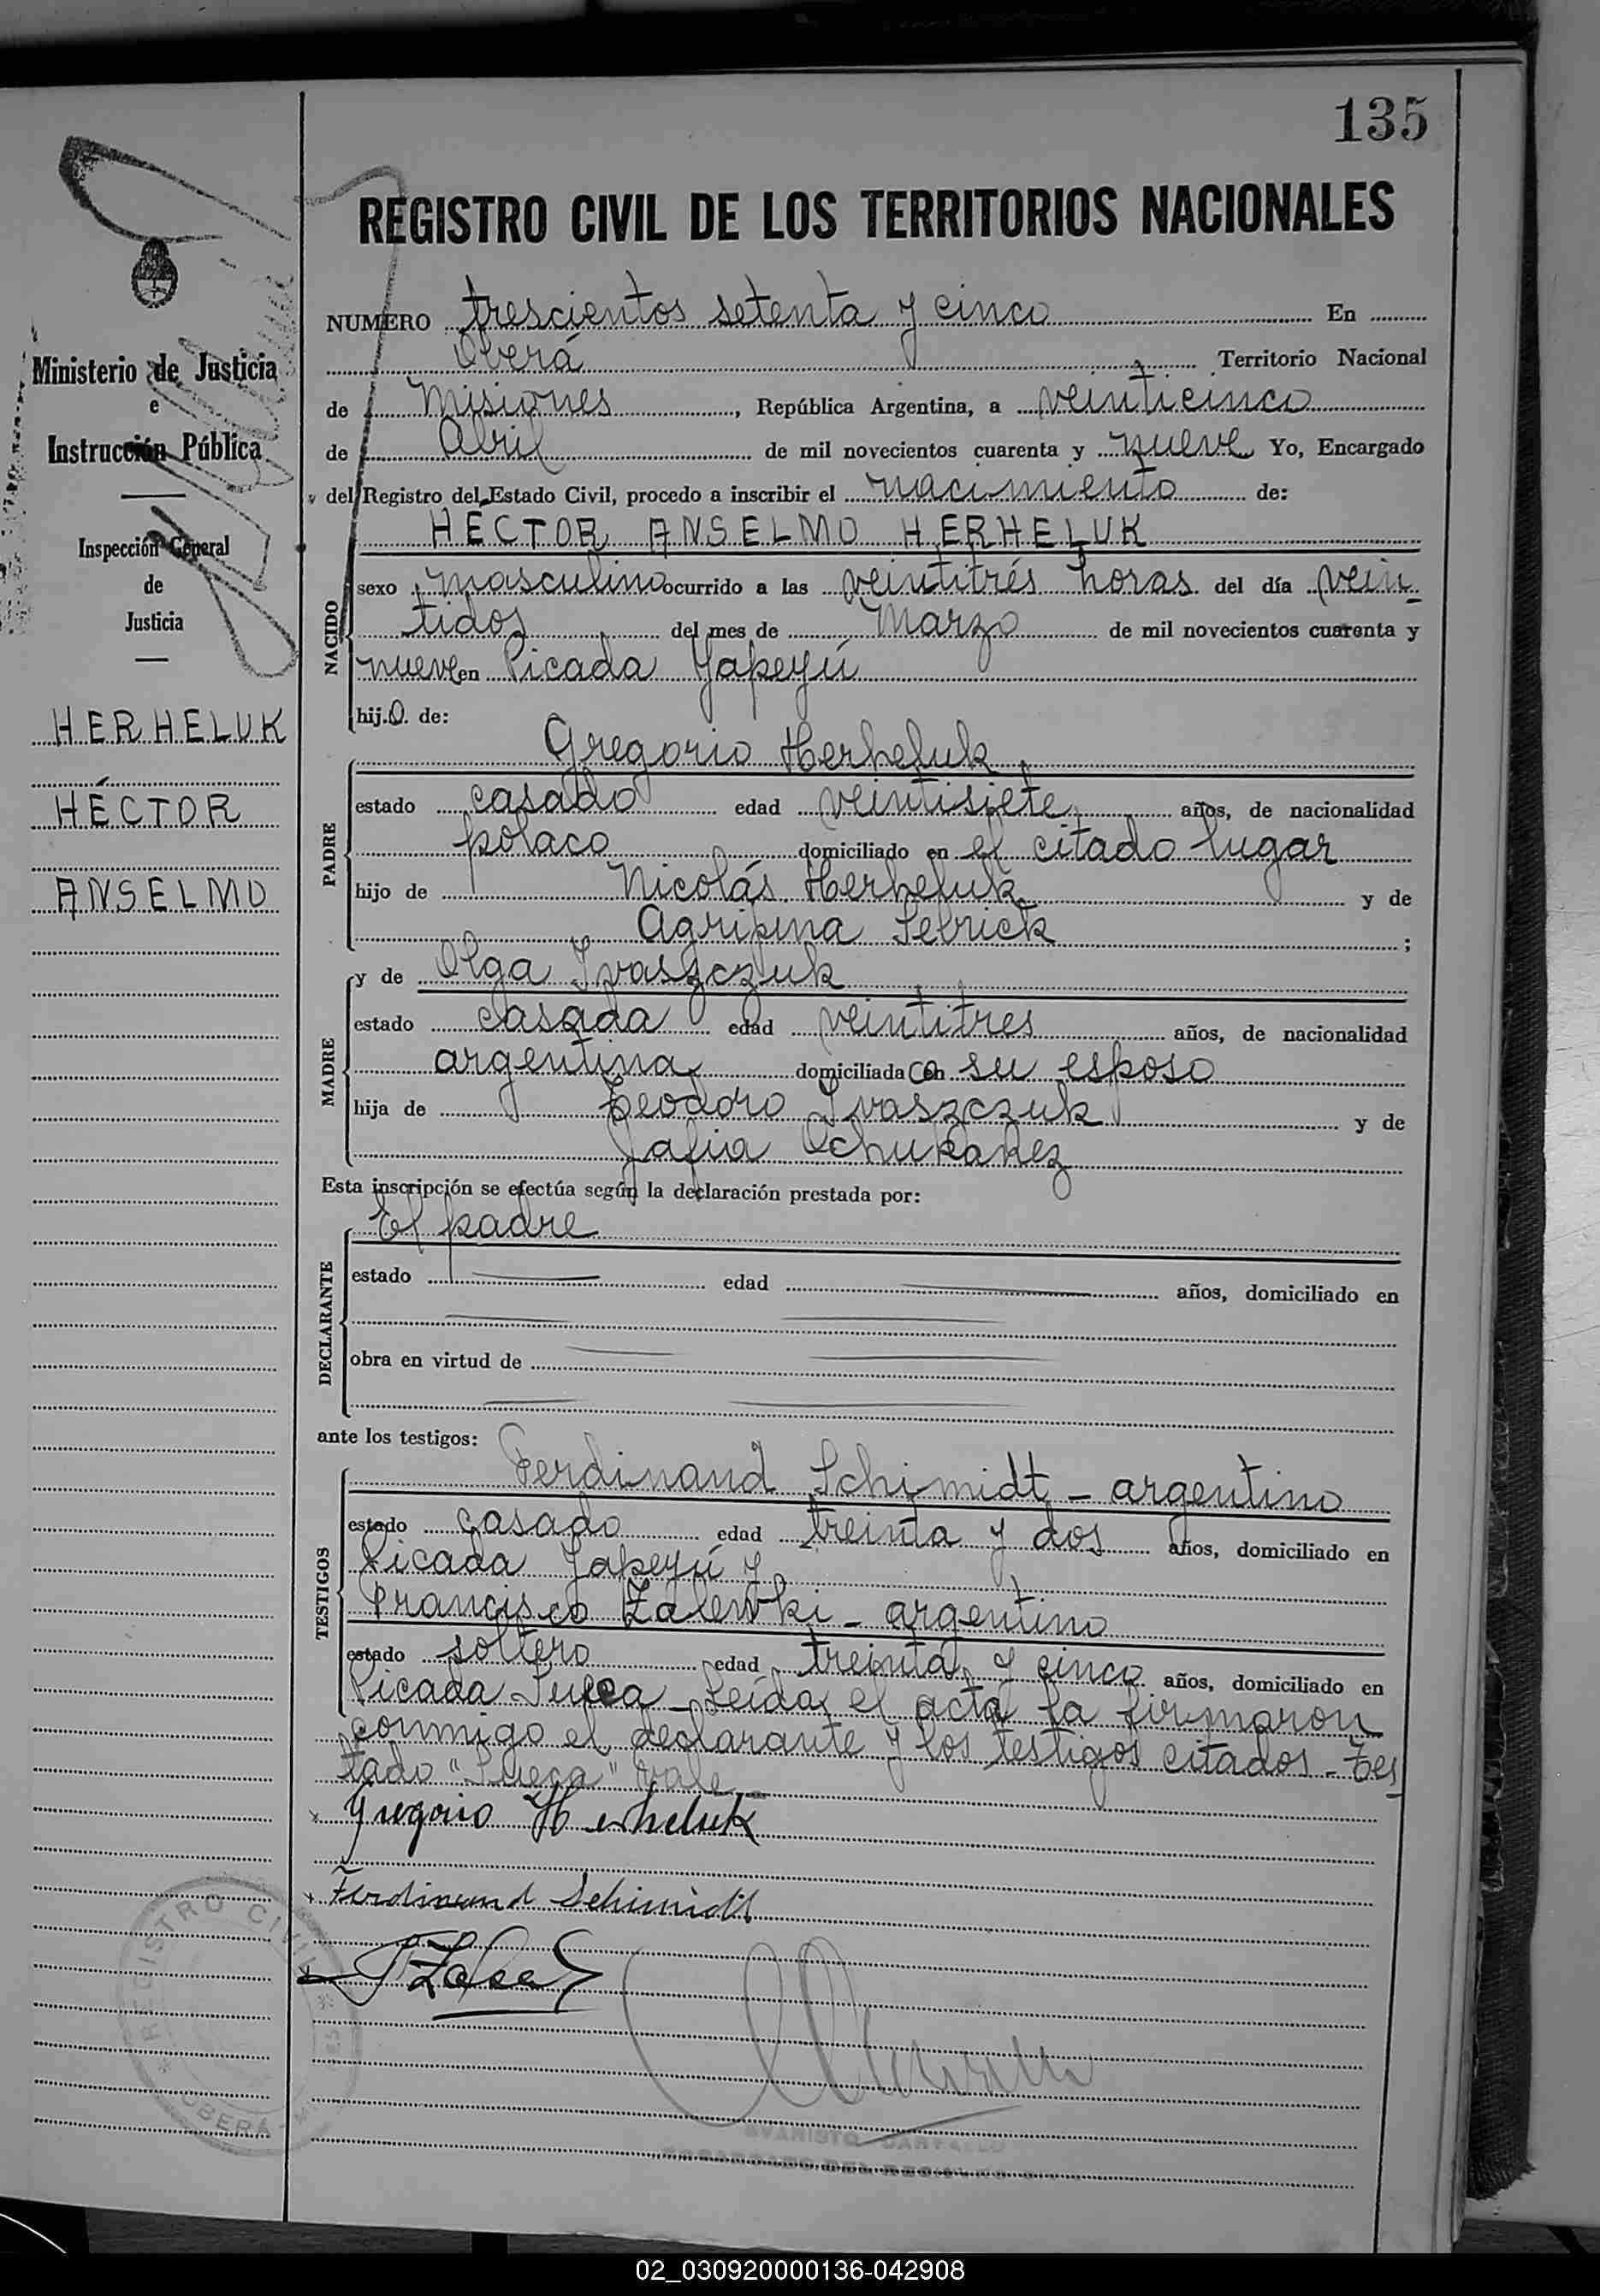 135
REGISTRO CIVIL DE LOS TERRITORIOS NACIONALES
Ministerio de Justicia
e
Instrucción Pública
Inspección General
de
Justicia
HERHELUK
HÉCTOR
ANSELMO
NUMERO trescientos setenta y cinco En
Oberá Territorio Nacional
de Misiones, República Argentina, a veinticinco
de Abril de mil novecientos cuarenta y nueve Yo, Encargado
del Registro del Estado Civil, procedo a inscribir el nacimiento de:
HÉCTOR ANSELMO HERHELUK
NACIDO
sexo masculino ocurrido a las veintitrés horas del día vein
tidos del mes de Marzo de mil novecientos cuarenta y
nueve en Picada Yapeyú
hijo de:
Gregorio Herheluk
PADRE
estado casado edad veintisiete años, de nacionalidad
polaco domiciliado en el citado lugar
hijo de Nicolás Herheluk y de
Agripina Sebrick ;
MADRE
y de Olga Ivaszczuk
estado casada edad veintitres años, de nacionalidad
argentina domiciliada con su esposo
hija de Teodoro Ivaszczuk y de
Jafia
Esta inscripción se efectúa según la declaración prestada por:
El padre
DECLARANTE
estado edad años, domiciliado en
obra en virtud de
ante los testigos:
TESTIGOS
Ferdinand Schimidt - argentino
estado casado edad treinta y dos años, domiciliado en
Picada Yapeyú y
Francisco Zalewki - argentino
estado soltero edad treinta y cinco años, domiciliado en
Picada Sueca - Leída el acta la firmaron
conmigo el declarante y los testigos citados - Tes
tado "Sueca" vale
Gregorio Herheluk
Ferdinand Schimidt
REGISTRO CIVIL
OBERÁ
EVARISTO
ENCARGADO DEL REGISTRO
02_030920000136-042908